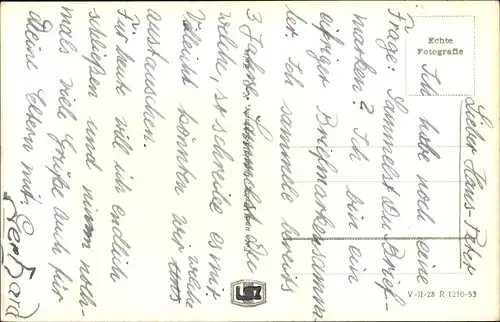 Lieber Hans-Peter
Ich habe noch eine
Frage: Sammelst Du Brief-
marken? Ich bin ein
eifriger Briefmarkensamm
ler. Ich sammle bereits
3 Jahre. Sammelst du
welche, so schreibe es mir.
Vielleicht könnten wir welche
austauschen.
Für heute will ich endlich
schließen und nimm noch-
mals viele Grüße auch für
deine Eltern mit.
Gerhard
Echte
Fotografie
V-11-28 R 1210-53